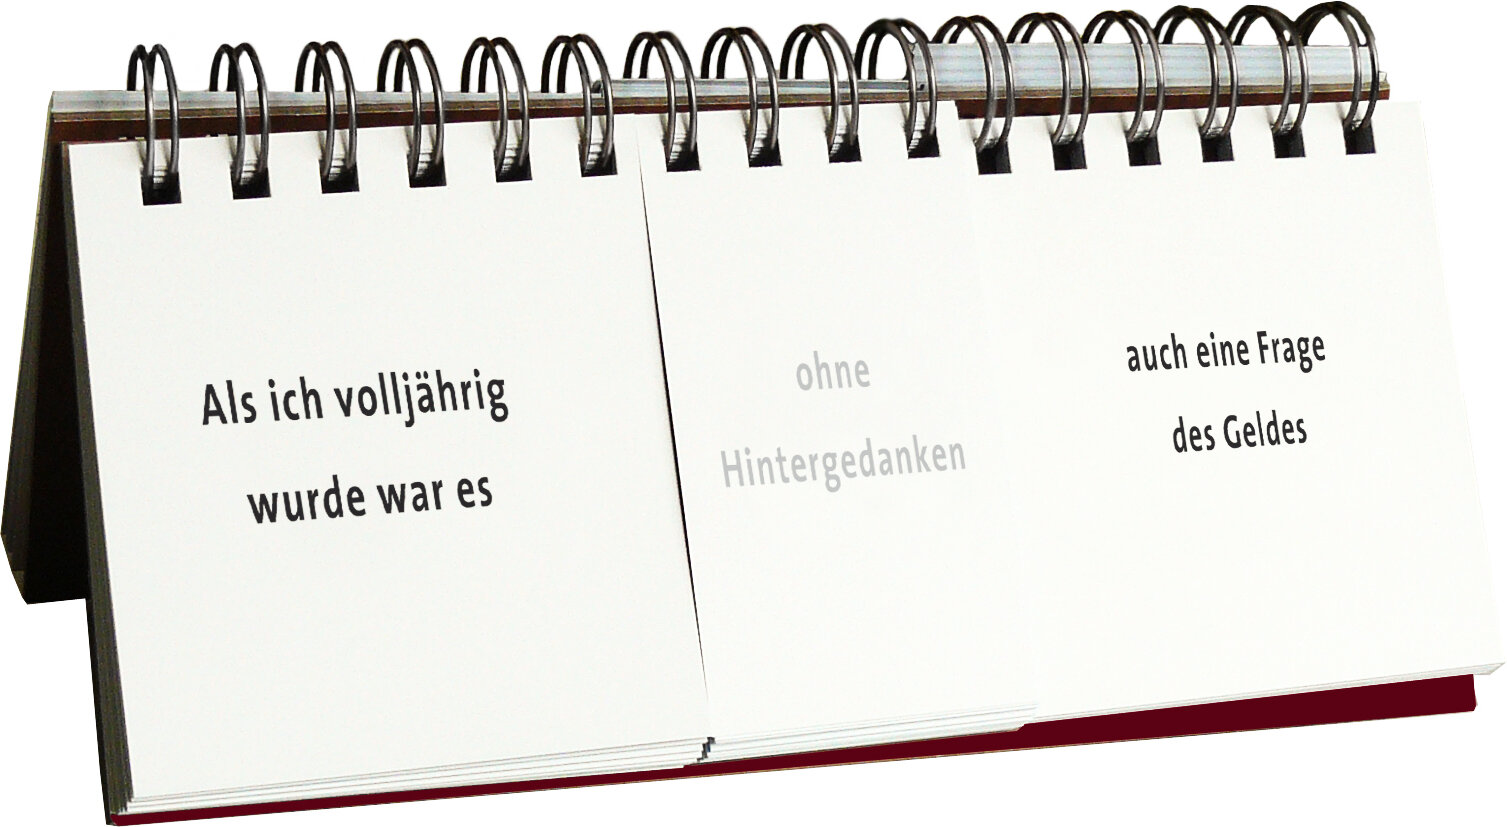 Als ich volljährig
wurde war es
ohne
Hintergedanken
auch eine Frage
des Geldes